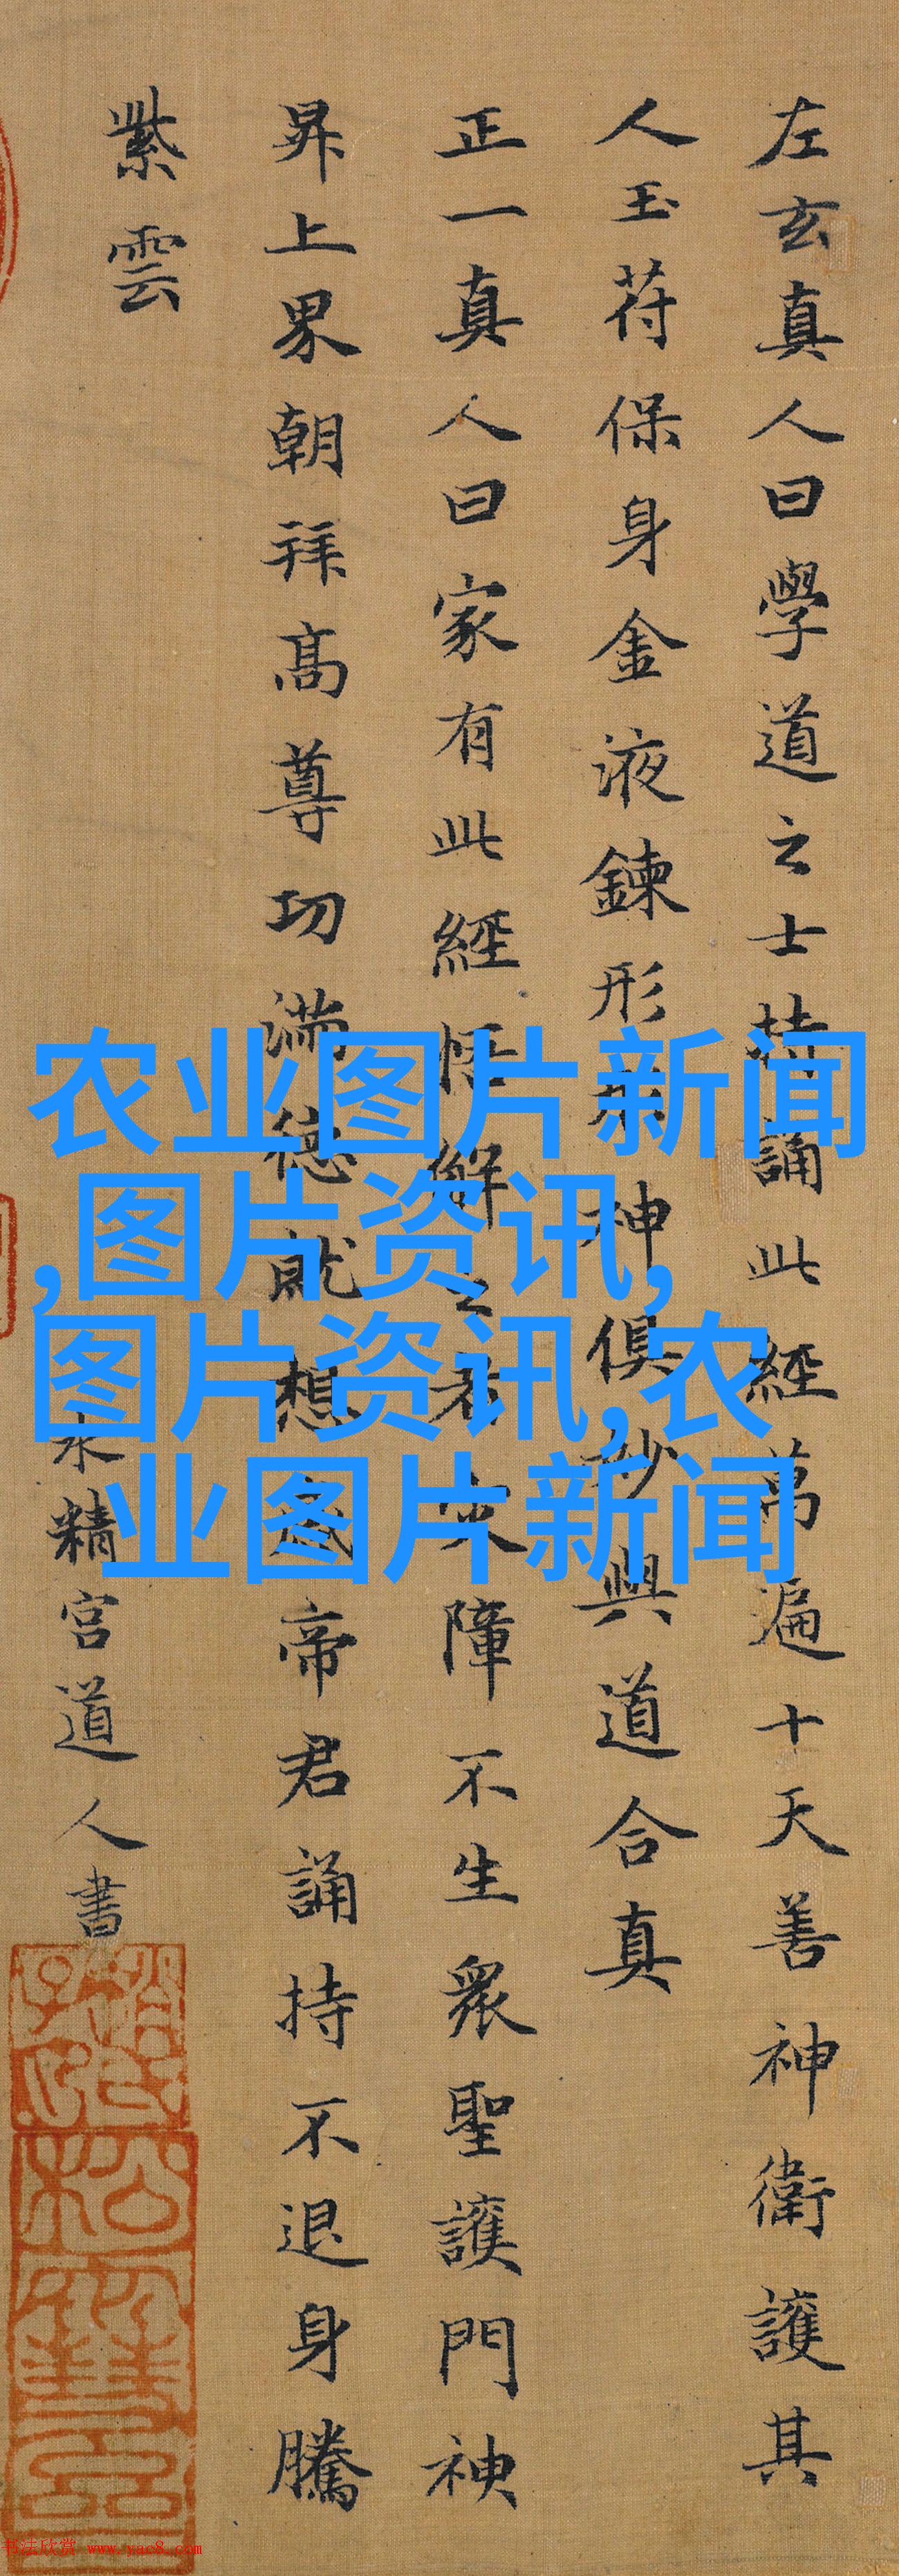 左玄真人曰學道之士持誦此經萬遍十天善神衛護其
人玉苻保身金液鍊形形神俱妙與道合真
正一真人曰家有此經悟解之者灾障不生衆聖護門神
昇上界朝拜髙尊功滿德就想感帝君誦持不退身騰
紫雲
水精宮道人書
农业图片新闻
,图片资讯,
图片资讯,农
业图片新闻
书法欣赏 www.yac8.com